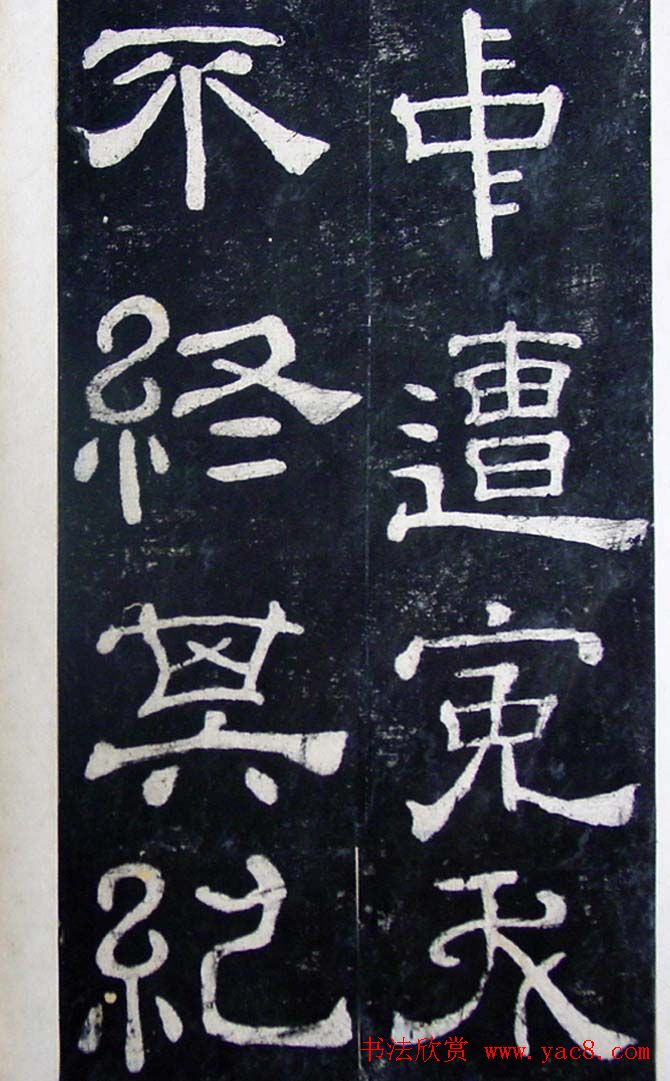 中遭冤夭
不終其紀
书法欣赏 www.yac8.com